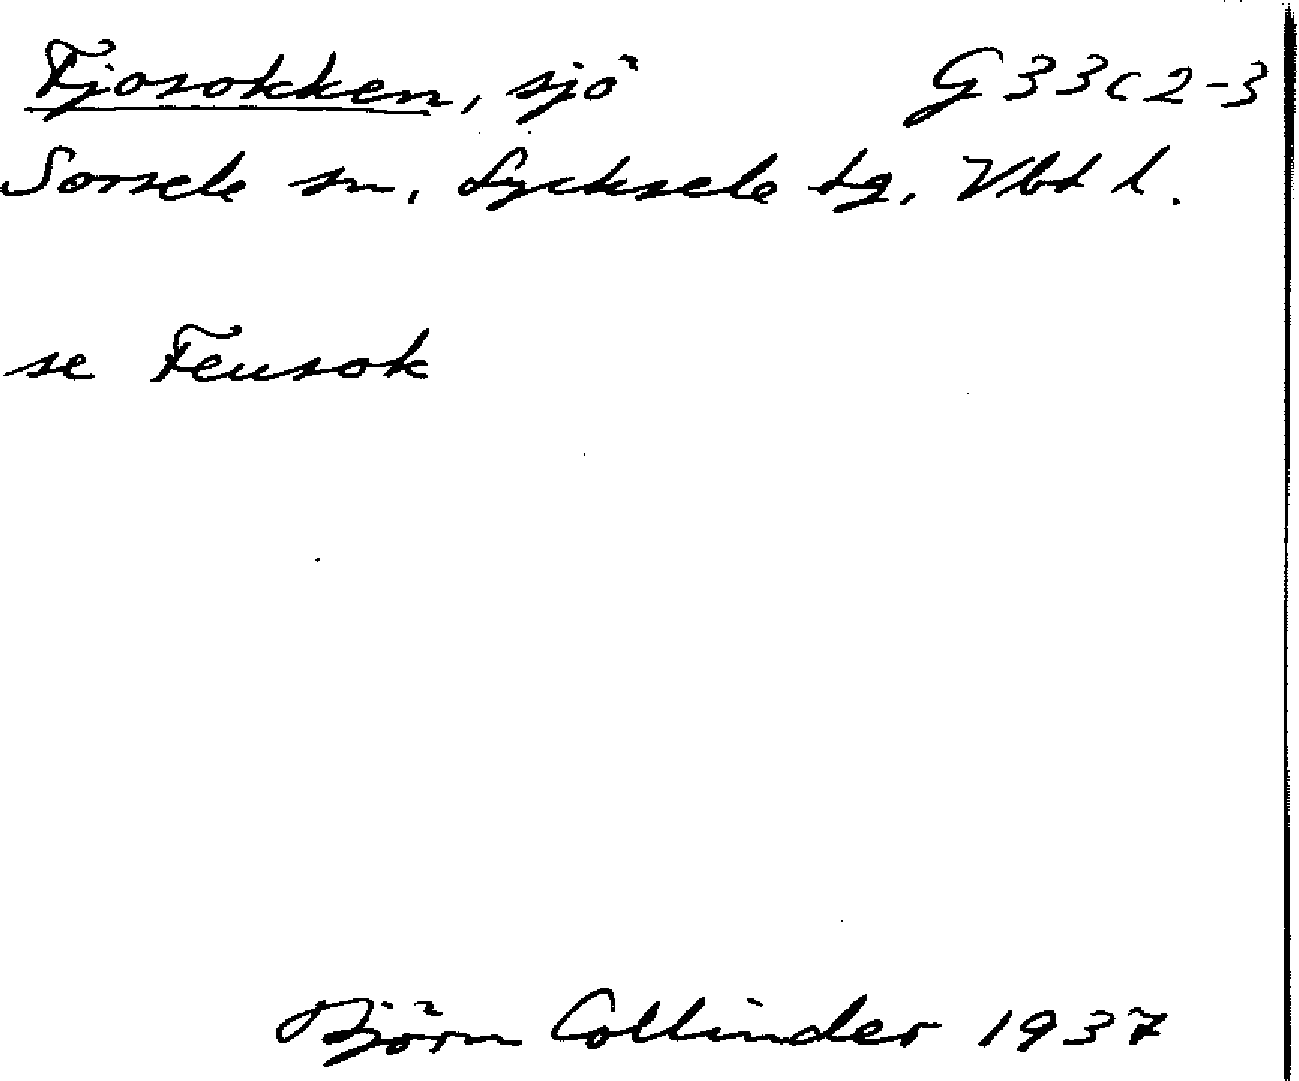 Fjosokken, sjö G 33 c 2-3
Sorsele sn, Lycksele tg, Vbd l.
se Feusok
Björn Collinder 1937